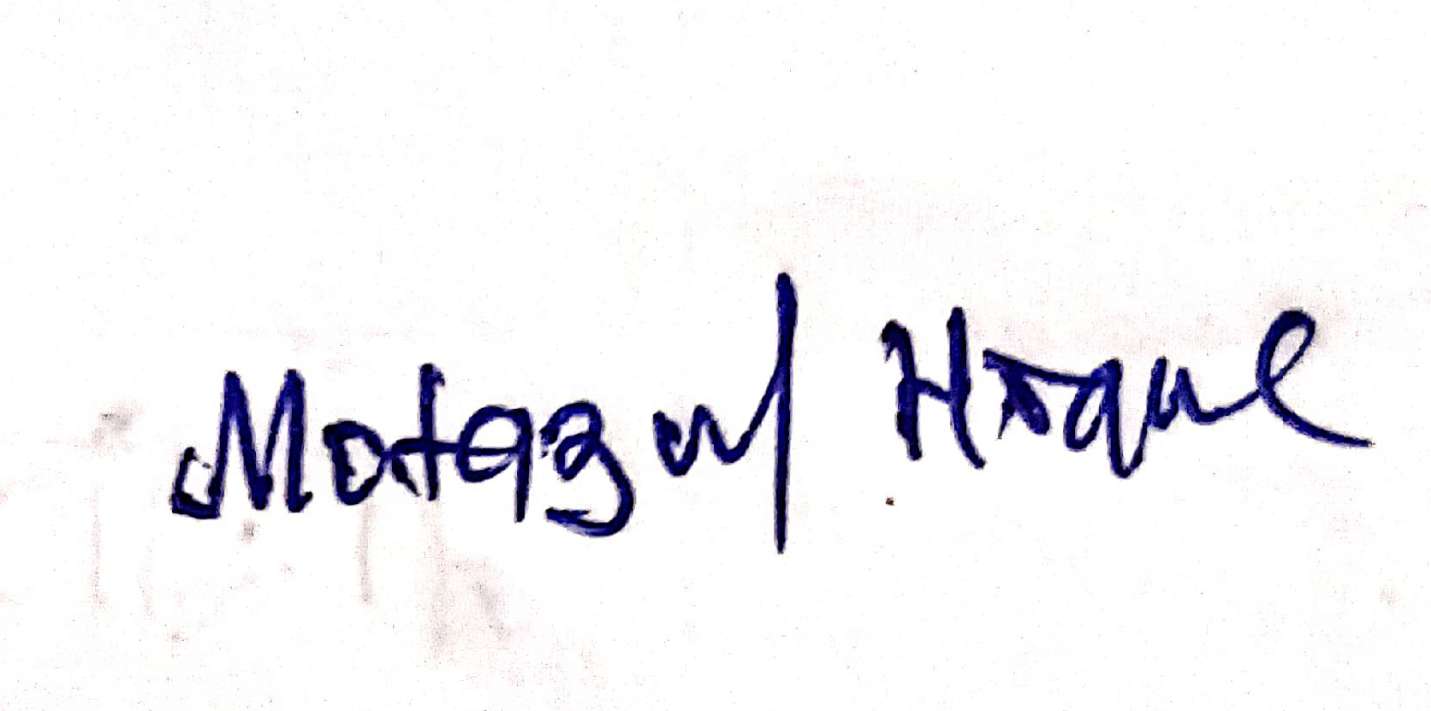 Motazul Hoque